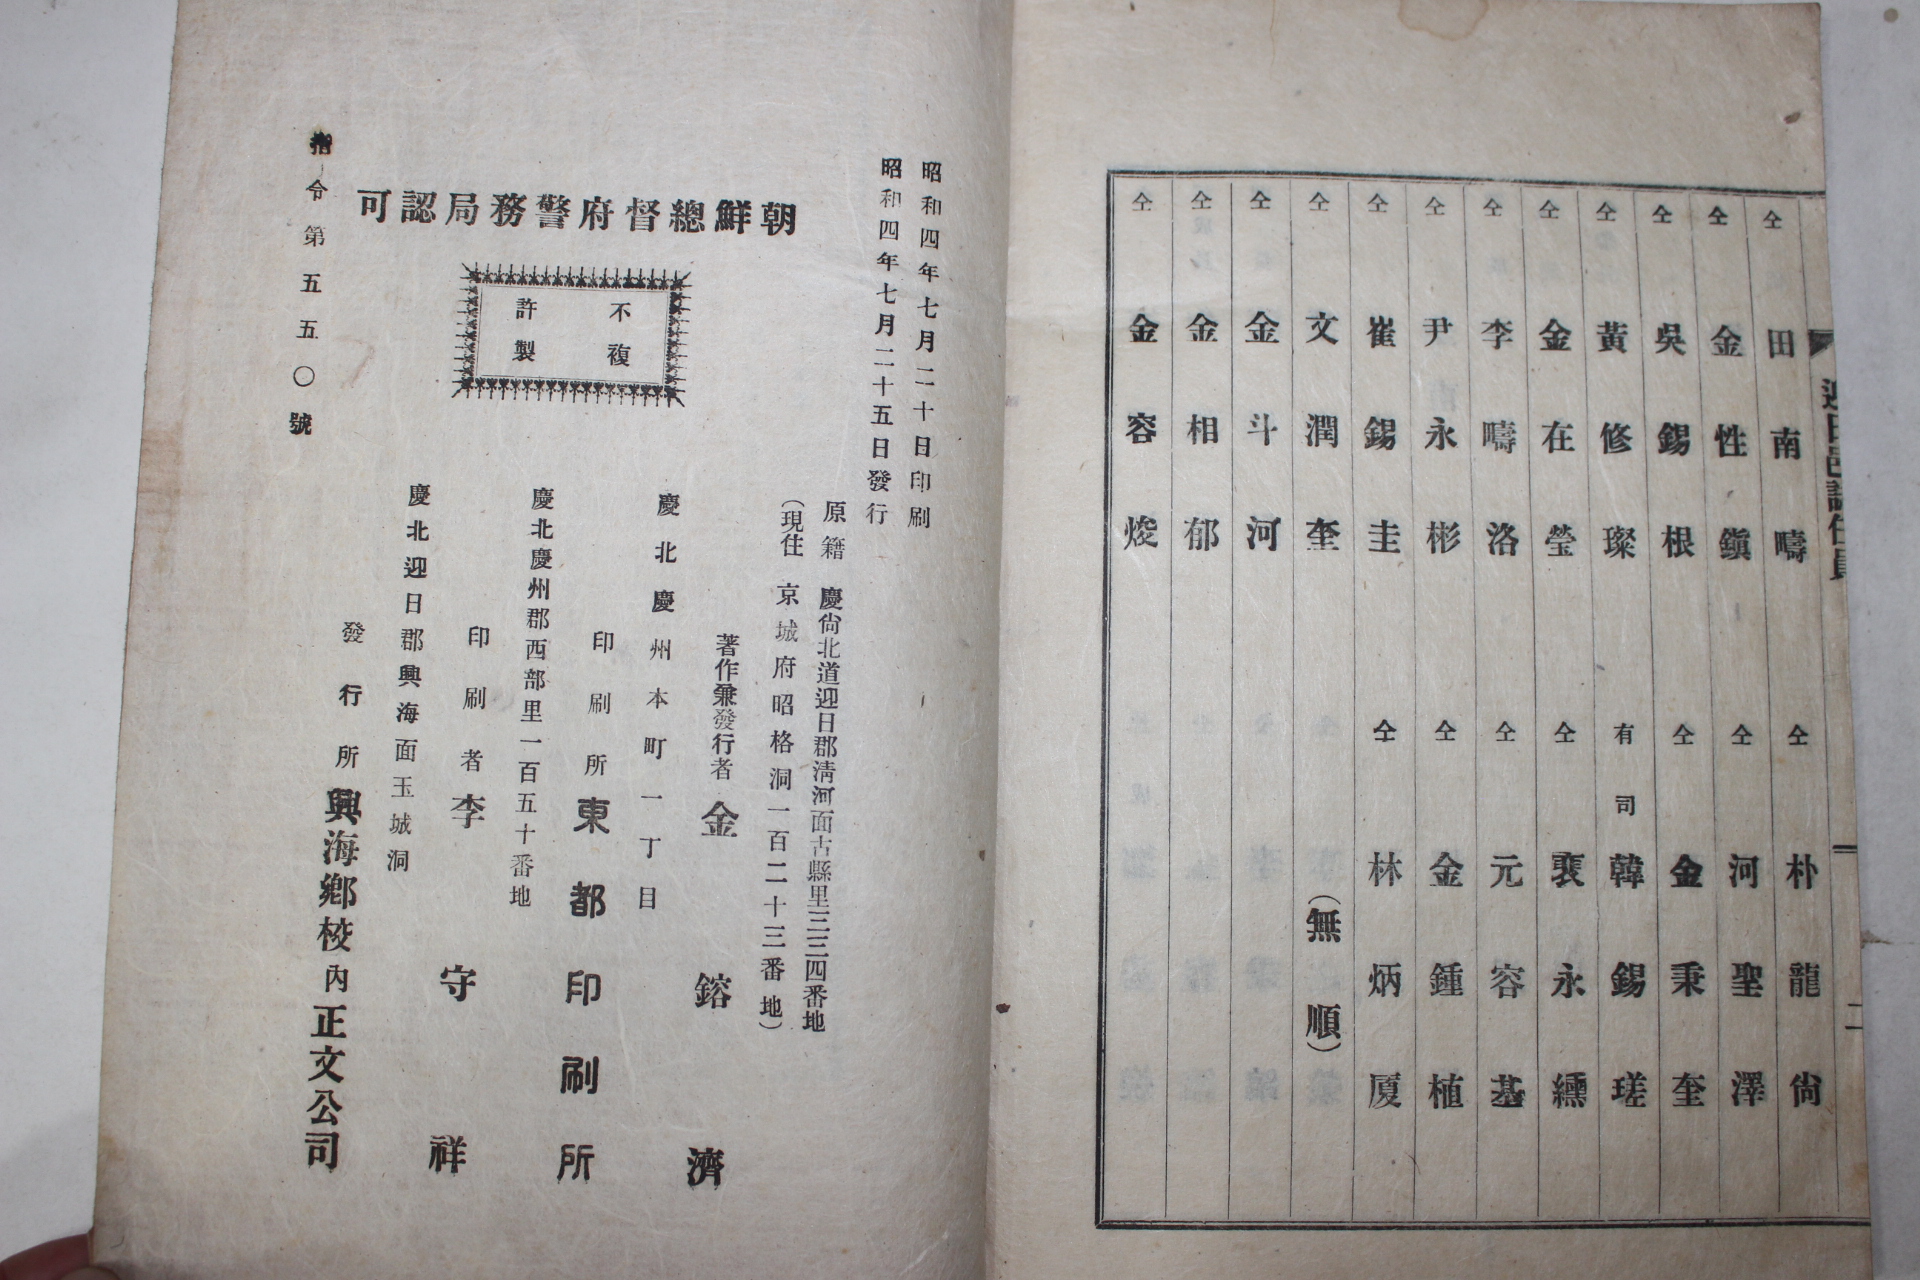 迎日邑誌任員
二
仝 田南疇
仝 金性鎭
仝 吳錫根
仝 黃修璨
仝 金在瑩
仝 李疇洛
仝 尹永彬
仝 崔錫圭
仝 文潤奎
仝 金斗河
仝 金相郁
仝 金容焌
仝 朴龍尙
仝 河聖澤
仝 金秉奎
有司 韓錫瑳
仝 裵永纁
仝 元容基
仝 金鍾植
仝 林炳厦
(無順)
昭和四年七月二十日印刷
昭和四年七月二十五日發行
朝鮮總督府警務局認可
不複
許製
指令第五五〇號
原籍 慶尙北道迎日郡淸河面古縣里三三四番地
(現住 京城府昭格洞一百二十三番地)
著作兼發行者 金鎔濟
慶北慶州本町一丁目
印刷所 東都印刷所
慶北慶州郡西部里一百五十番地
印刷者 李守祥
慶北迎日郡興海面玉城洞
發行所 興海鄕校內正文公司